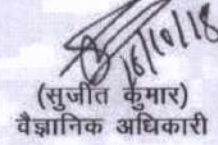 16/10/18
(सुजीत कुमार)
वैज्ञानिक अधिकारी